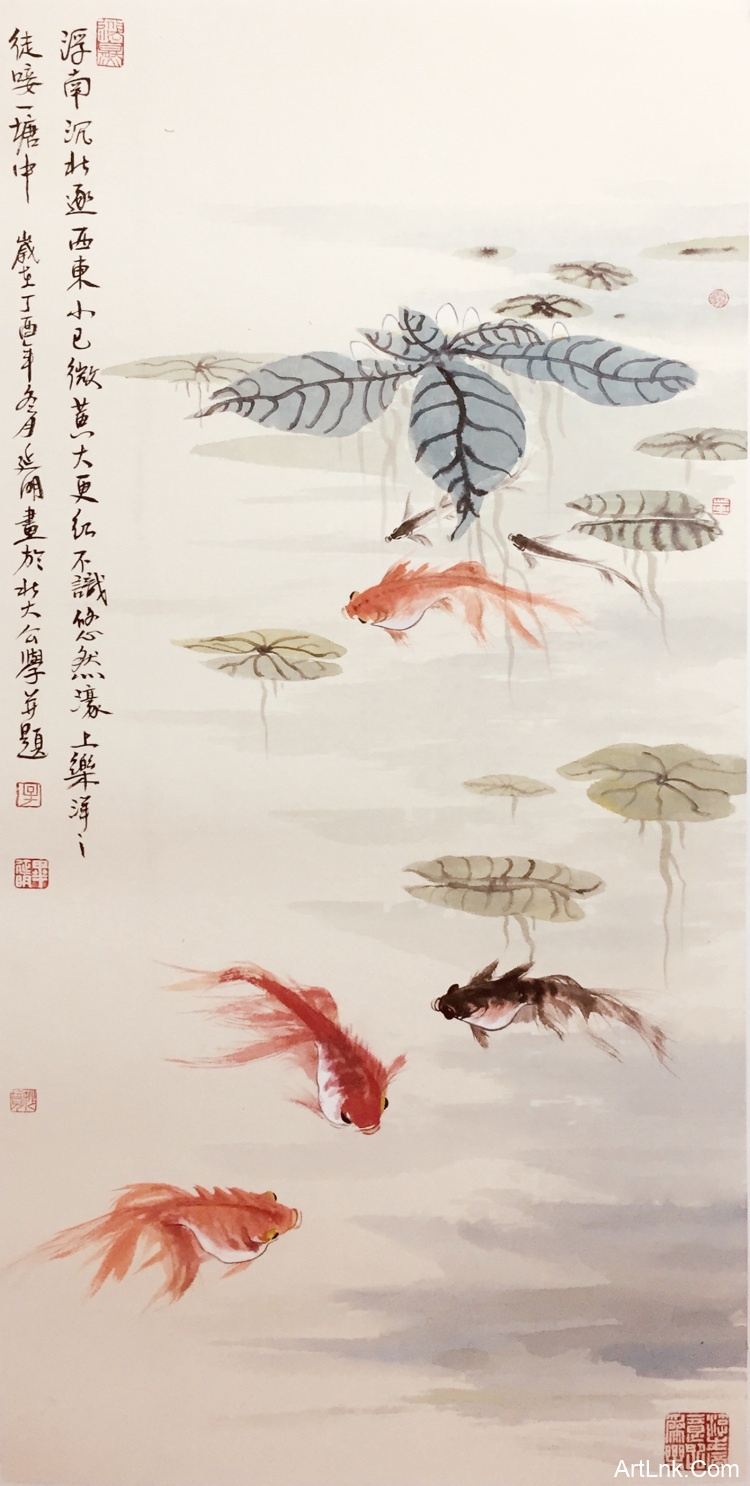 浮南沉北逐西東小已微黄大更紅不識悠然濠上樂洋〻
徒唼一塘中
歲在丁酉年冬月延明畫於北大公學并題
ArtLnk.Com